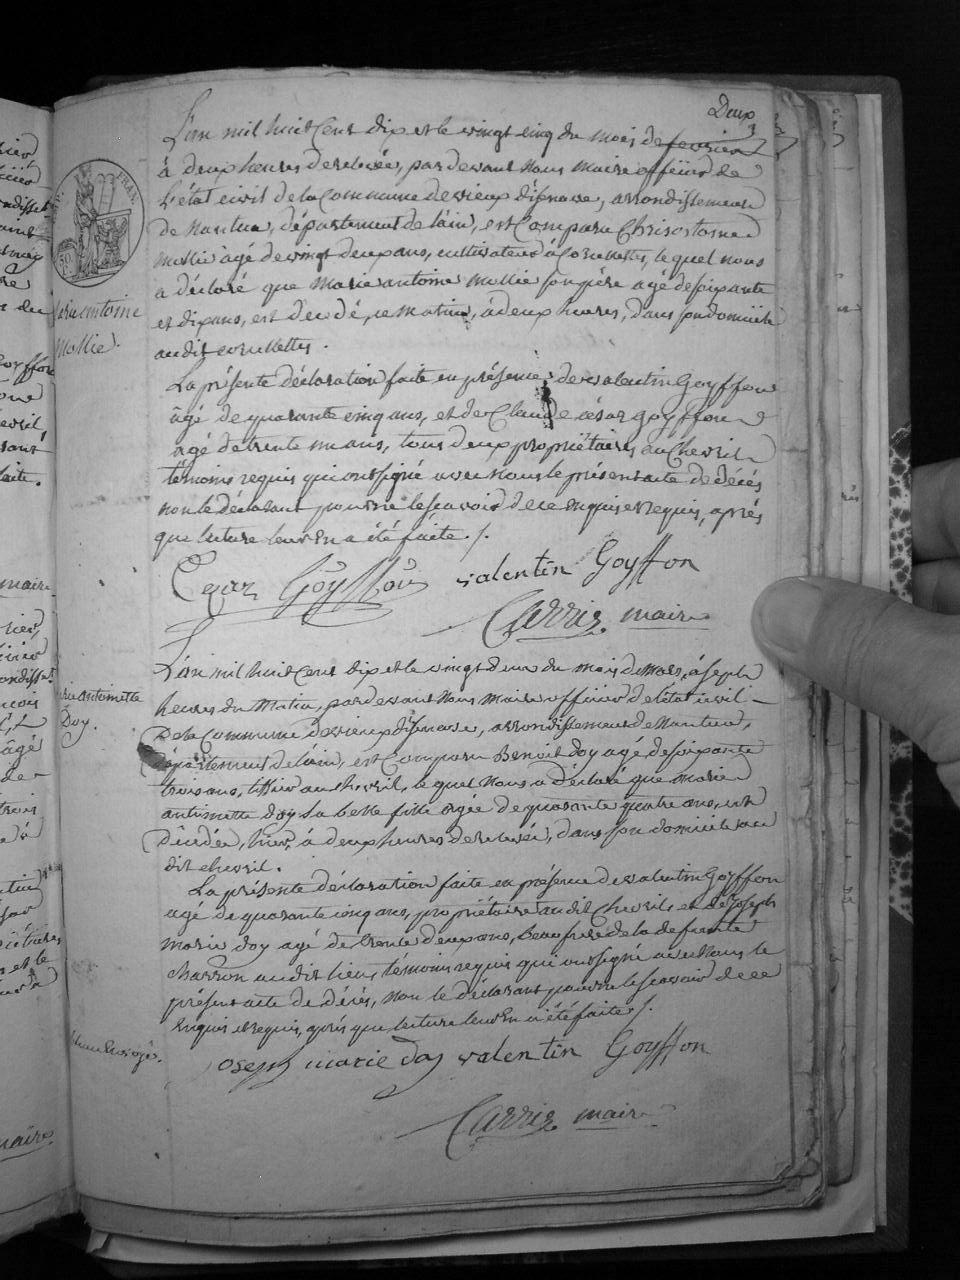 Deux
L'an mil huit Cent dix et le vingt cinq du mois de fevrier
à deux heures de relevée, par devant nous maire officier de
L'état civil de la Commune de vieux d'isenave, arrondissement
de Nantua, département de l'ain, est Comparu Chrisostome
Mollie âgé de vingt deux ans, cultivateur à Corcellettes, lequel nous
a déclaré que Marie antoine Mollie son père agé de soixante
et dix ans, est décédé, ce Matin, à deux heures, dans son domicile
audit corcellettes.
Marie antoine
Mollie.
La présente déclaration faite en présence de valentin Goyffon
âgé de quarante cinq ans, et de Claude césar goyffon
agé de trente un ans, tous deux propriétaires au Chevril
témoins requis qui ont signé avec Nous le présent acte de décés
non le déclarant pour ne le scavoir de ce enquis et requis, aprés
que lecture leur En a été faite /.
Cezar Goyffon valentin Goyffon
Carrier maire
L'an mil huit Cent dix et le vingt deux du mois de Mars, à sept
heures du Matin, par devant Nous Maire officier de l'état civil
De la Commune de vieux d'isenave, arrondissement de Nantua,
département de l'ain, est Comparu Benoit Doy agé de soixante
trois ans, tissier au chevril, lequel Nous a déclaré que marie
antoinette Doy sa belle fille agée de quarante quatre ans, est
Décédée, hier, à deux heures de relevée, dans son domicile au
dit chevril.
Marie antoinette
Doy.
La présente déclaration faite en présence de valentin Goyffon
agé de quarante cinq ans, propriétaire audit Chevril, et de Joseph
Marie Doy agé de trente deux ans, Beau frère de la defunte
charron audit lieu, témoins requis qui ont signé avec Nous le
présent acte de décés, Non le déclarant pour ne le scavoir de ce
Enquis et requis, aprés que lecture leur En a été faite /.
joseph marie doy valentin Goyffon
Carrier maire